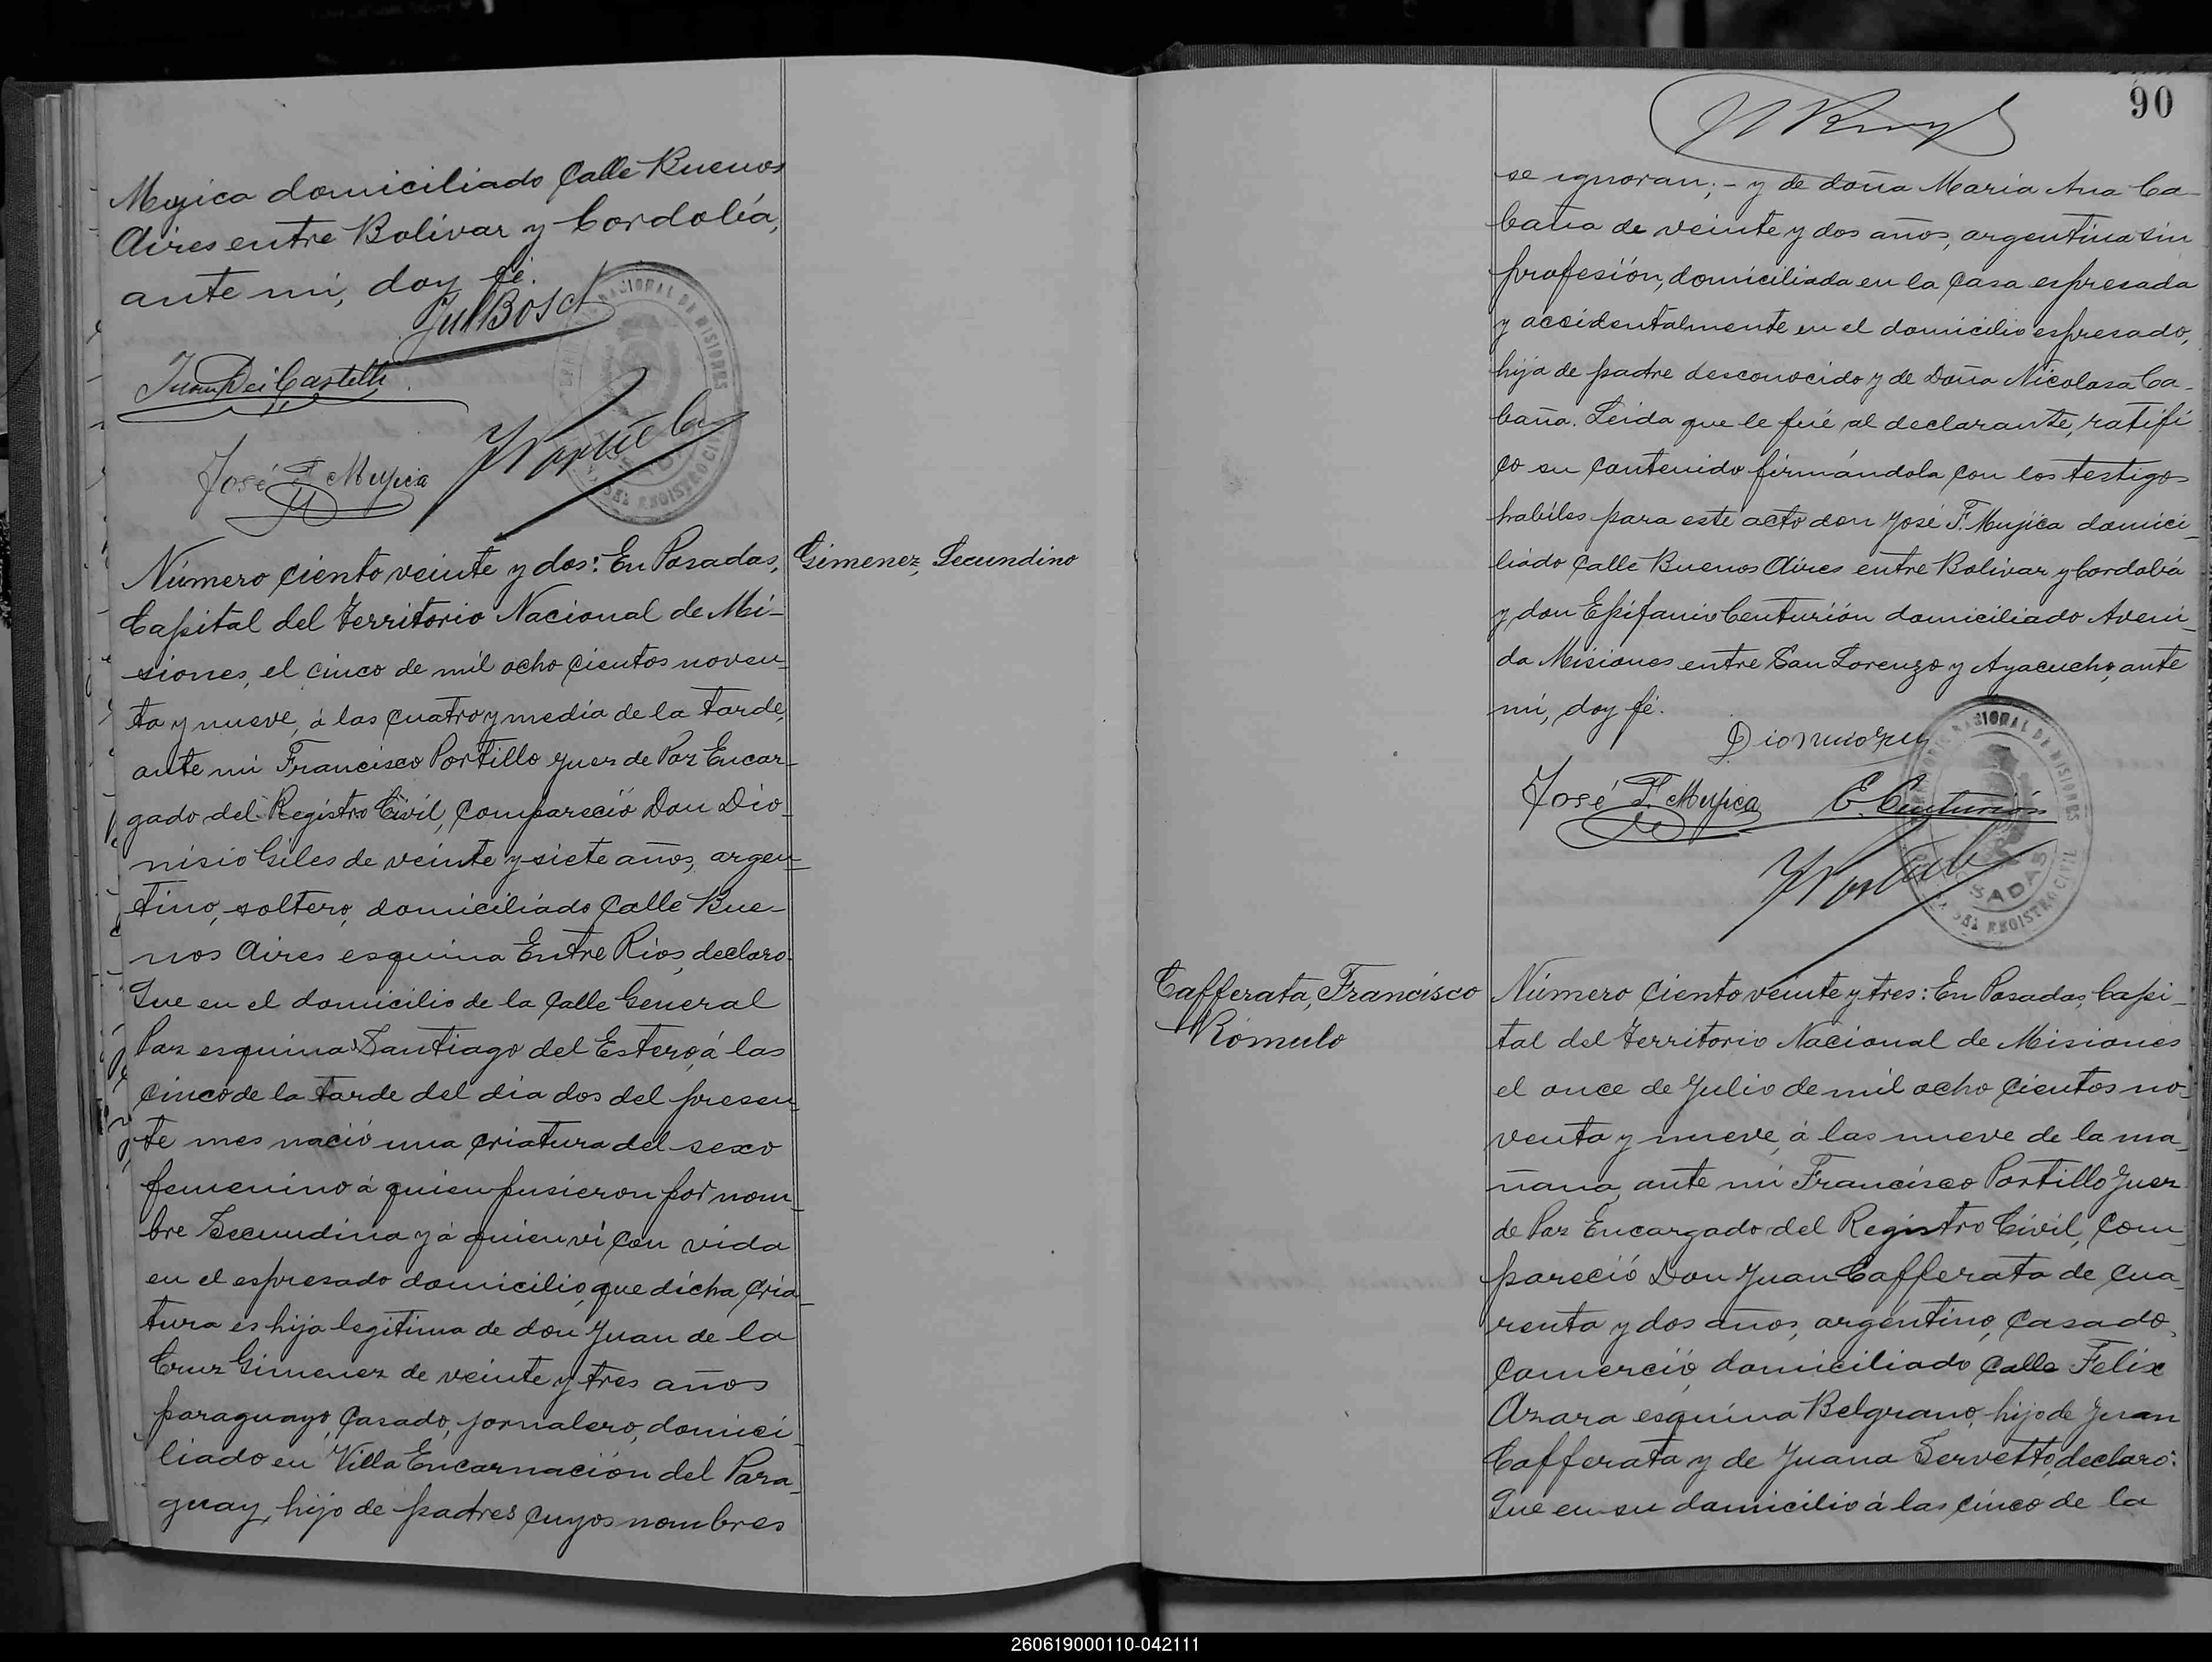 Mujica domiciliado Calle Buenos
Aires entre Bolivar y Cordoba,
ante mi, doy fé.
José F. Mujica
Número ciento veinte y dos: En Posadas,
Capital del Territorio Nacional de Mi-
siones, el cinco de mil ocho cientos noven-
ta y nueve, á las cuatro y media de la tarde,
ante mi Francisco Portillo Juez de Paz Encar-
gado del Registro Civil, compareció Don Dio-
nisio Giles de veinte y siete años, argen-
tino, soltero, domiciliado Calle Bue-
nos Aires esquina Entre Rios, declaro
Que en el domicilio de la Calle General
Paz esquina Santiago del Estero, á las
cinco de la tarde del dia dos del presen-
te mes nació una criatura del sexo
femenino á quien pusieron por nom-
bre Secundina y á quien vi con vida
en el espresado domicilio, que dicha cria-
tura es hija legitima de don Juan de la
Cruz Gimenez de veinte y tres años
paraguayo, casado, jornalero, domici-
liado en Villa Encarnación del Para-
guay, hijo de padres cuyos nombres
Gimenez, Secundino
90
se ignoran; - y de doña Maria Ana Ca-
baña de veinte y dos años, argentina sin
profesión, domiciliada en la casa espresada
y accidentalmente en el domicilio espresado,
hija de padre desconocido y de Doña Nicolasa Ca-
baña. Leida que le fué al declarante, ratifi-
co su contenido firmándola con los testigos
habiles para este acto don José F. Mujica domici-
liado Calle Buenos Aires entre Bolivar y Cordoba
y don Epifanio Centurión domiciliado Aveni-
da Misiones entre San Lorenzo y Ayacucho, ante
mi, doy fé.
José F. Mujica E. Centurión
Cafferata, Francisco
Rómulo
Número ciento veinte y tres: En Posadas, Capi-
tal del Territorio Nacional de Misiones
el once de Julio de mil ocho cientos no-
venta y nueve, á las nueve de la ma-
ñana, ante mi Francisco Portillo Juez
de Paz Encargado del Registro Civil, com-
pareció Don Juan Cafferata de cua-
renta y dos años, argentino, casado,
comercio, domiciliado Calle Felix
Azara esquina Belgrano, hijo de Juan
Cafferata y de Juana Servetto, declaró:
Que en su domicilio á las cinco de la
260619000110-042111